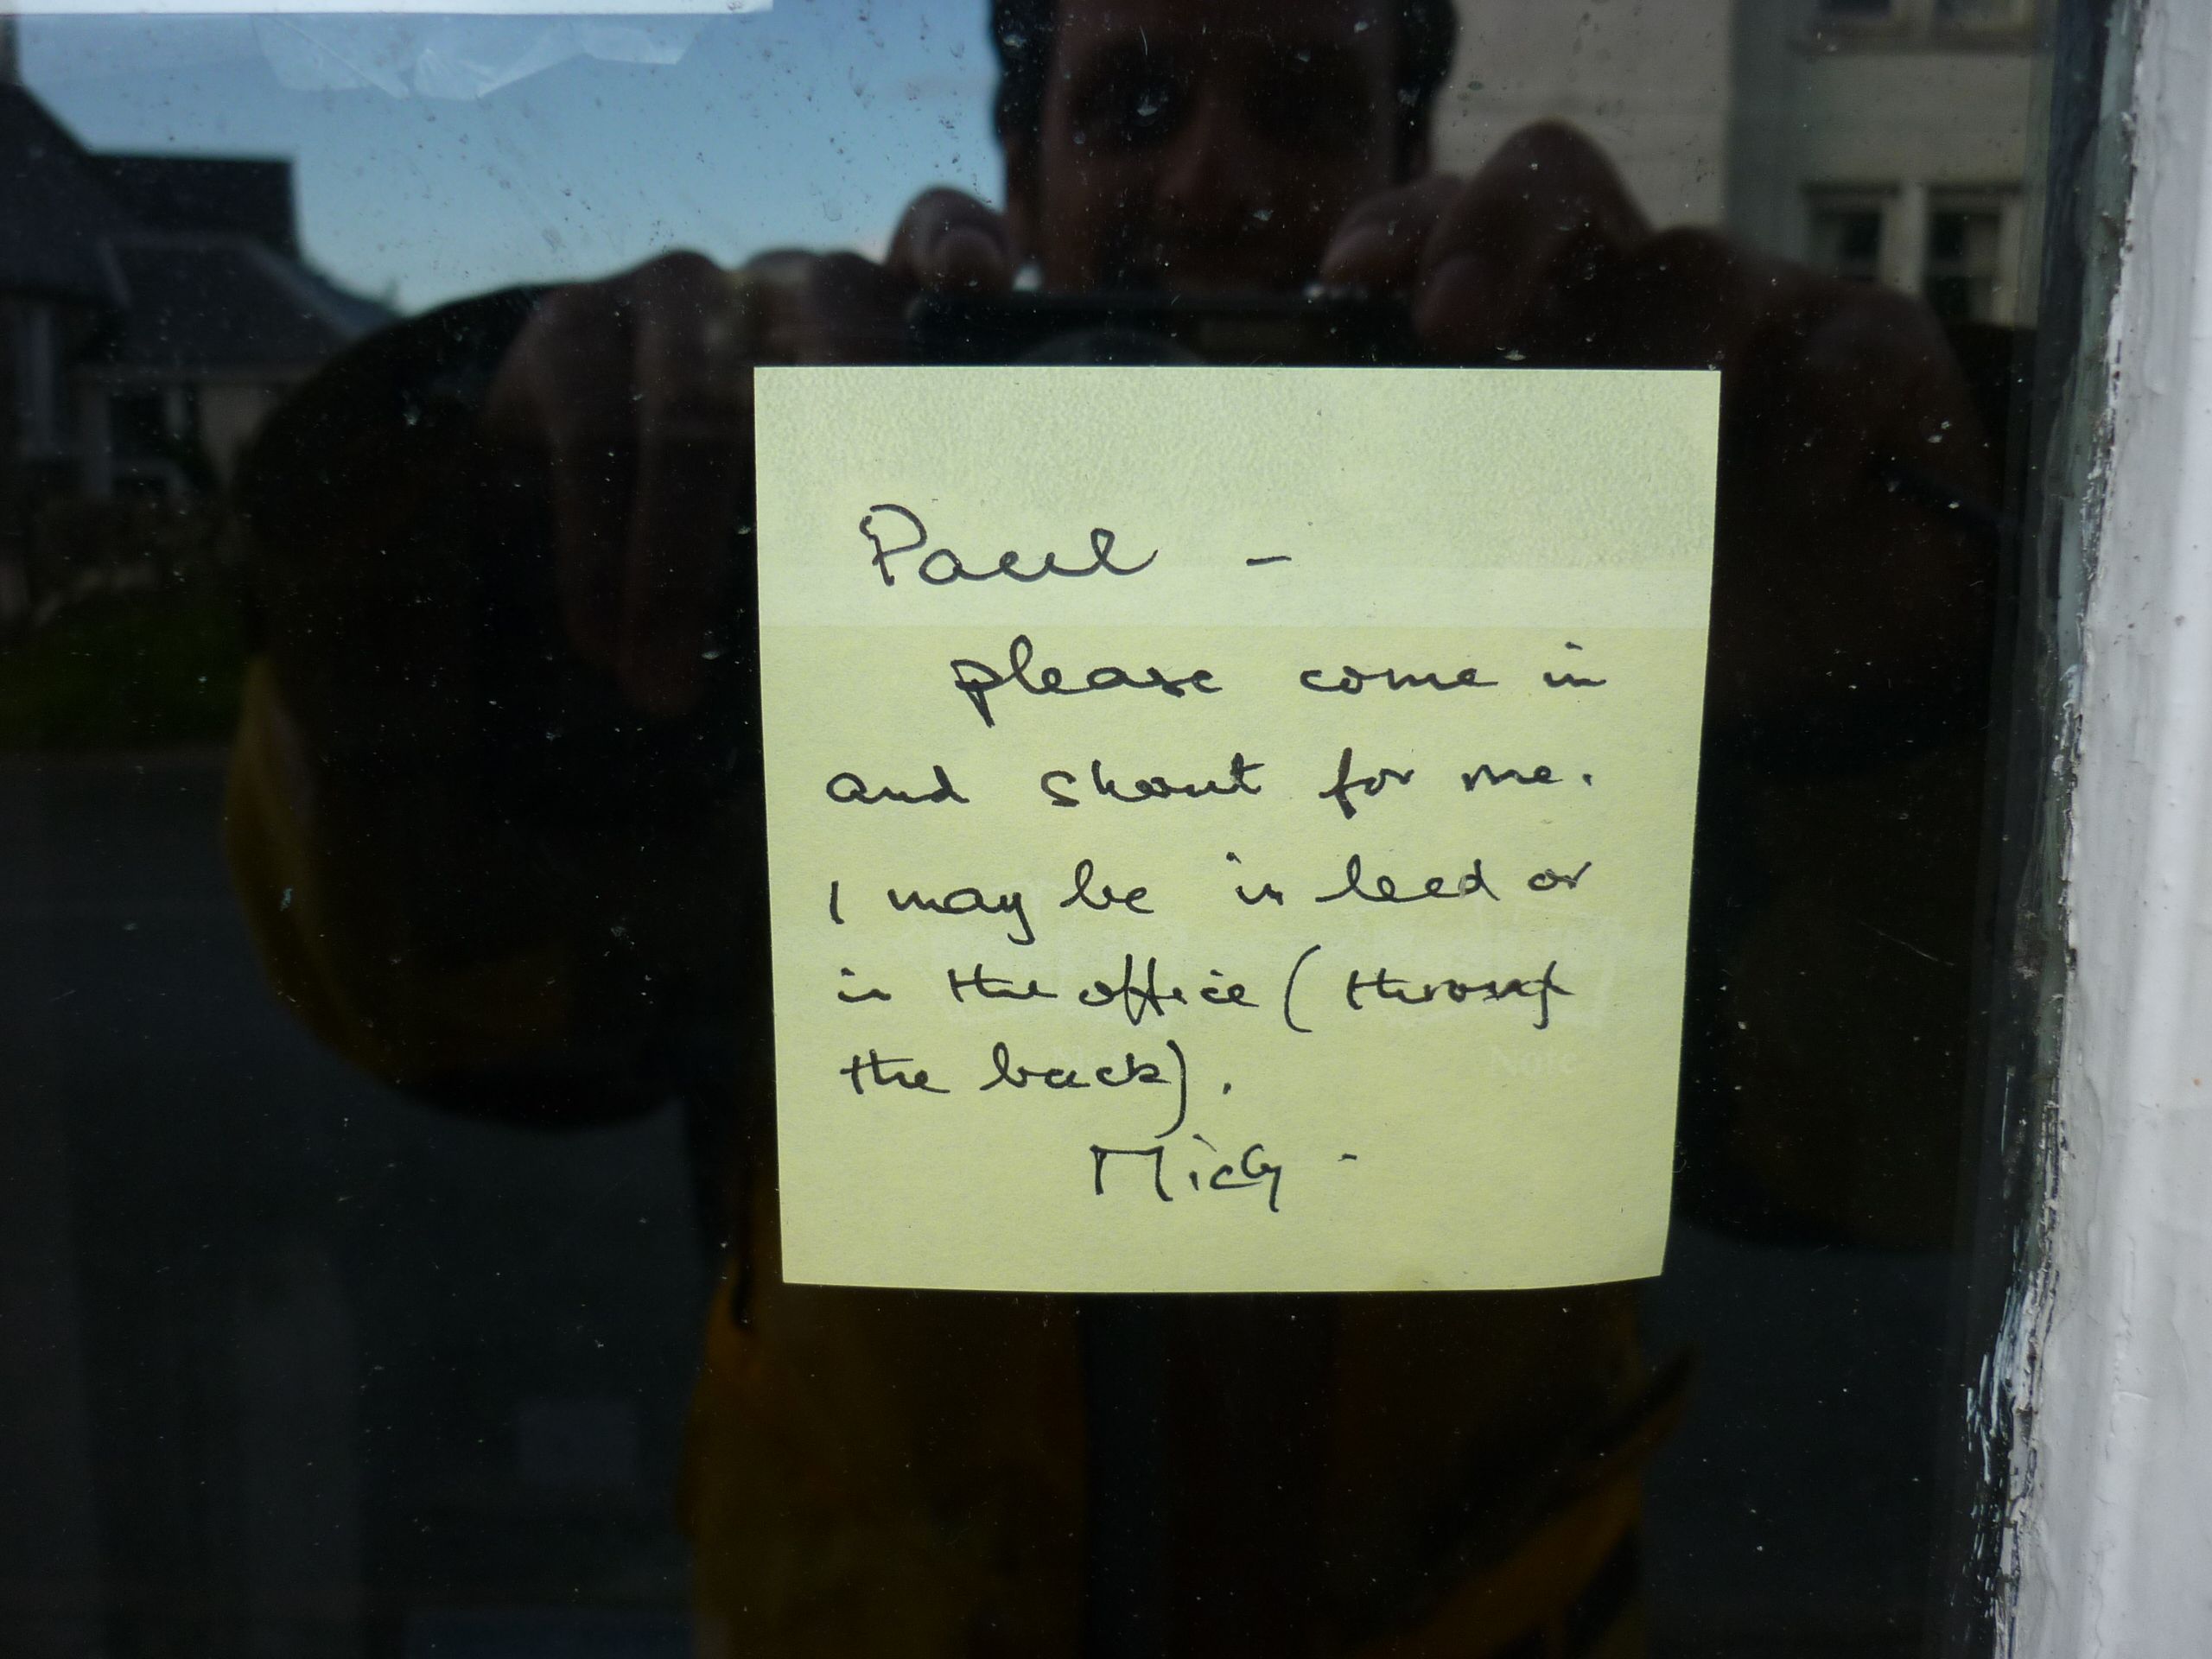 Paul -
please come in
and shout for me.
I may be in bed or
in the office (through
the back).
Micky -